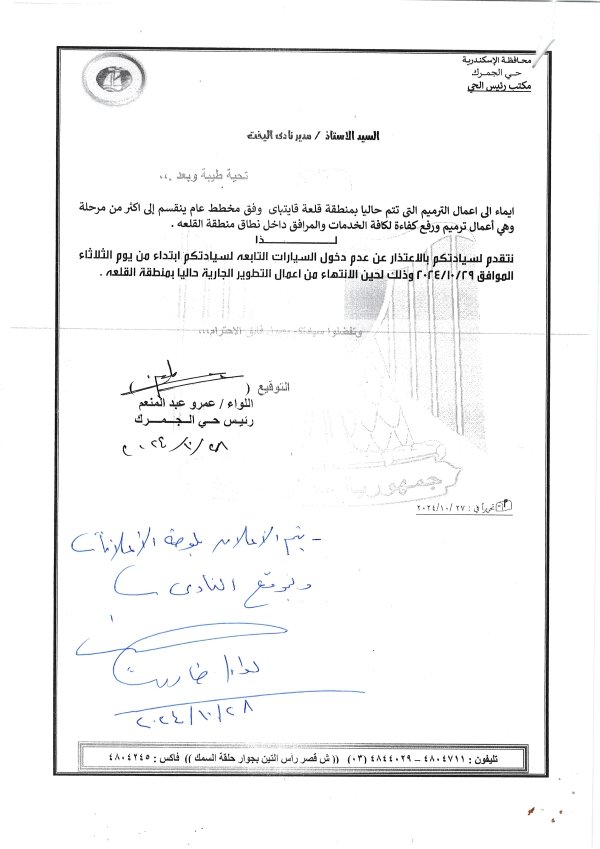 محافظة الإسكندرية
حي الجمرك
مكتب رئيس الحي
السيد الاستاذ / مدير نادى اليخت
تحية طيبة وبعد ،،،
ايماء الى اعمال الترميم التى تتم حاليا بمنطقة قلعة قايتباى وفق مخطط عام ينقسم إلى اكثر من مرحلة
وهي أعمال ترميم ورفع كفاءة لكافة الخدمات والمرافق داخل نطاق منطقة القلعه .
لـــــذا
نتقدم لسيادتكم بالاعتذار عن عدم دخول السيارات التابعه لسيادتكم ابتداء من يوم الثلاثاء
الموافق ٢٠٢٤/١٠/٢٩ وذلك لحين الانتهاء من اعمال التطوير الجارية حاليا بمنطقة القلعه .
وتفضلوا سيادتكم فائق الاحترام،،،
التوقيع ( )
اللواء / عمرو عبد المنعم
رئيس حي الـجـمـرك
٢٠٢٤/١٠/٢٨
جمهوري
تحريراً في : ٢٠٢٤/١٠/٢٧
- يتم الاعلان بلوحة الإعلانات
وبموقع النادى
لواء /
٢٠٢٤/١٠/٢٨
تليفون : ٤٨٠٤٧١١ – ٤٨٤٤٠٢٩ (٠٣) (( ش قصر راس التين بجوار حلقة السمك )) فاكس : ٤٨٠٤٢٤٥